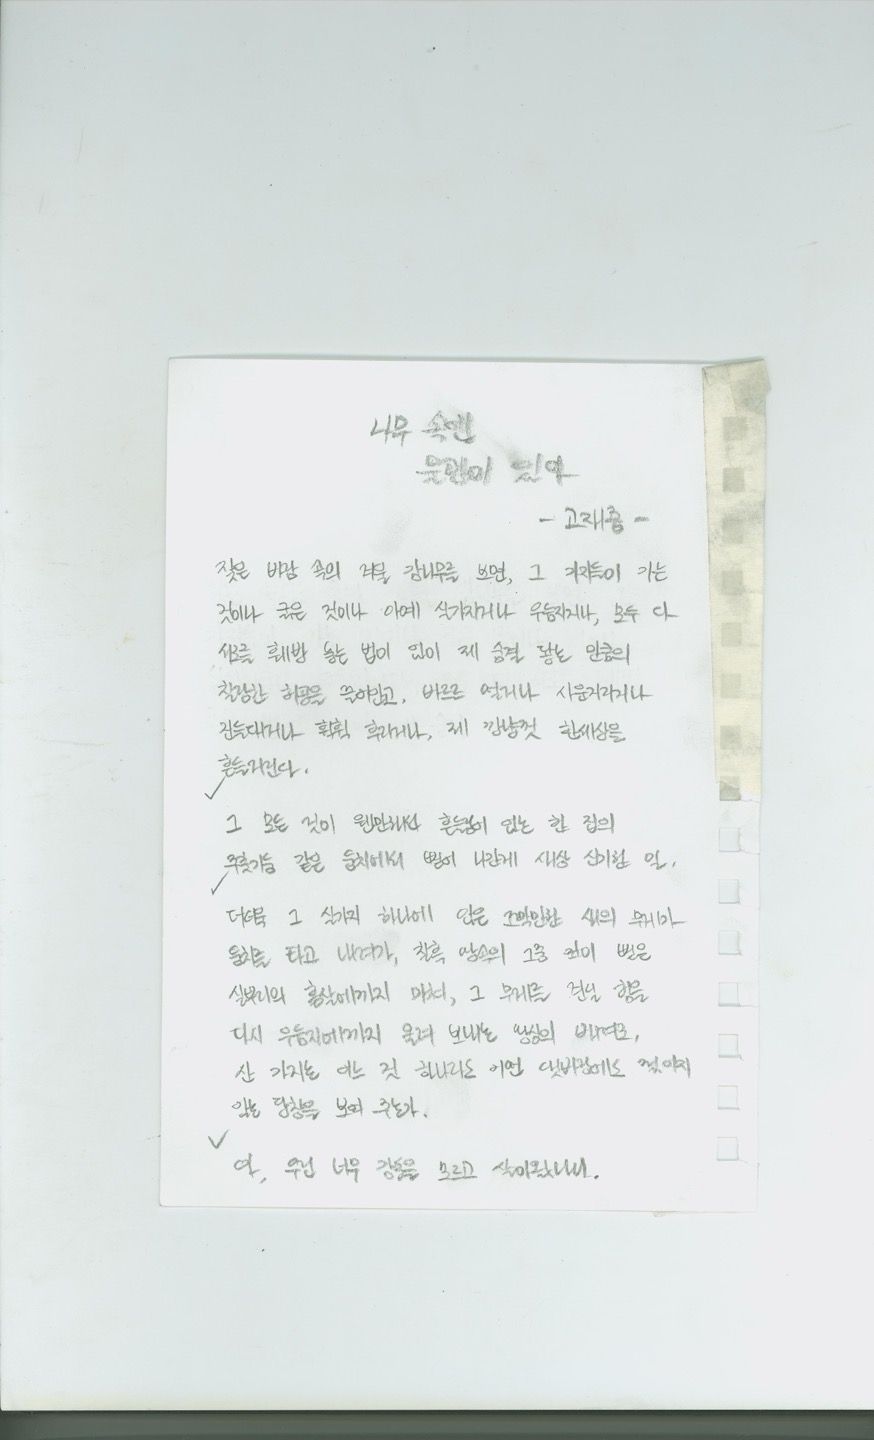 나무 속엔
물관이 있다
- 고재종 -
잦은 바람 속의 겨울 감나무를 보면, 그 가지들이 가는
것이나 굵은 것이나 아예 실가지거나 우듬지거나, 모두 다
서로를 훼방 놓는 법이 없이 제 숨결 닿는 만큼의
찰랑한 허공을 끌어안고, 바르르 떨거나 사운거리거나
건들대거나 휙휙 후리거나, 제 깜냥껏 한세상을
흔들거린다.
그 모든 것이 웬만해선 흔들림이 없는 한 집의
주춧기둥 같은 둥치에서 뻗어 나간게 새삼 신기한 일.
더더욱 그 실가지 하나에 앉은 조막만한 새의 무게가
둥치를 타고 내려가, 칠흑 땅속의 그중 깊이 뻗은
실뿌리의 흙살에까지 미쳐, 그 무게를 견딜 힘을
다시 우듬지에까지 올려 보내는 땅심의 배려로,
산 가지는 어느 것 하나라도 어떤 댓바람에도 꺾이지
않는 당참을 보여 주는가.
아, 우린 너무 감동을 모르고 살아왔느니.